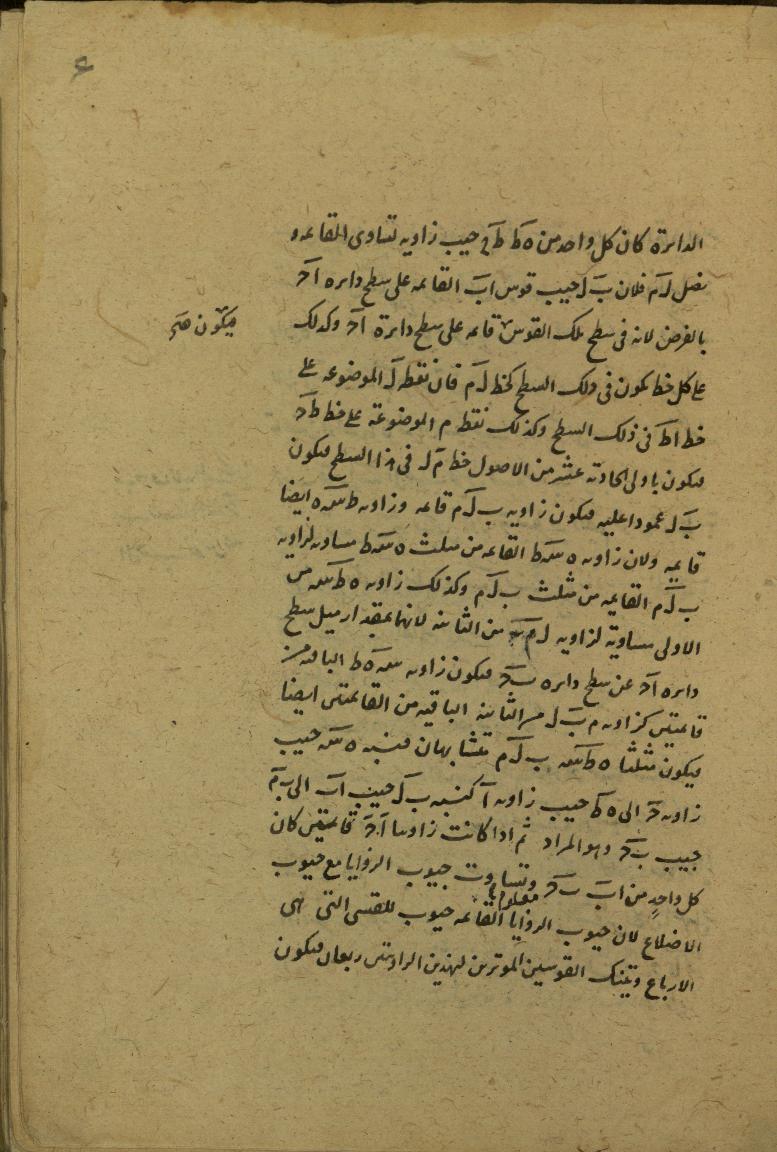 ع
الدائرة كان كل واحد من ه ط ط ح جيب زاويه تساوى القاعه و
نصل ل م فلان ب ل جيب قوس اب القائمه على سطح دائره اح
بالفرض لانه فى سطح تلك القوس قائمه على سطح دائرة اح وكذلك
فيكون هى
على كل خط يكون فى ذلك السطح كخط ل م فان نقطه ل الموضوعه على
خط اط فى ذلك السطح وكذلك نقطه م الموضوعة على خط ط ح
فيكون باولى الحاديه عشر من الاصول خط م ل فى هذا السطح فيكون
ب ل عمودا عليه فيكون زاويه ب ل م قائمه وزاويه ط سه ه ايضا
قائمه ولان زاويه ه سه ط القائمه من مثلث ه سه ط مساويه لزاويه
ب ل م القائمه من مثلث ب ل م وكذلك زاويه ه ط سه من
الاولى مساوية لزاويه ل م ب من الثانيه لانها بمقدار ميل سطح
دايره اح عن سطح دايره ب ح فيكون زاويه سه ه ط الباقيه من
قائمتين كزاويه م ب ل من الثانيه الباقيه من القائمتين ايضا
فيكون مثلثا ه ط سه ب ل م متشابهان فنسبه ه سه جيب
زاويه ح الى ه ط جيب زاويه ا كنسبه ب ل جيب اب الى ب م
جيب ب ح وهو المراد ثم اذا كانت زاويتا ا ح قائمتين كان
كل واحد من اب ب ح وتساوت جيوب الزوايا مع جيوب
الاضلاع لان جيوب الزوايا القائمه جيوب للقسى التى هى
الارباع وتينك القوسين الموترين لهذين الزاويتين ربعان فيكون